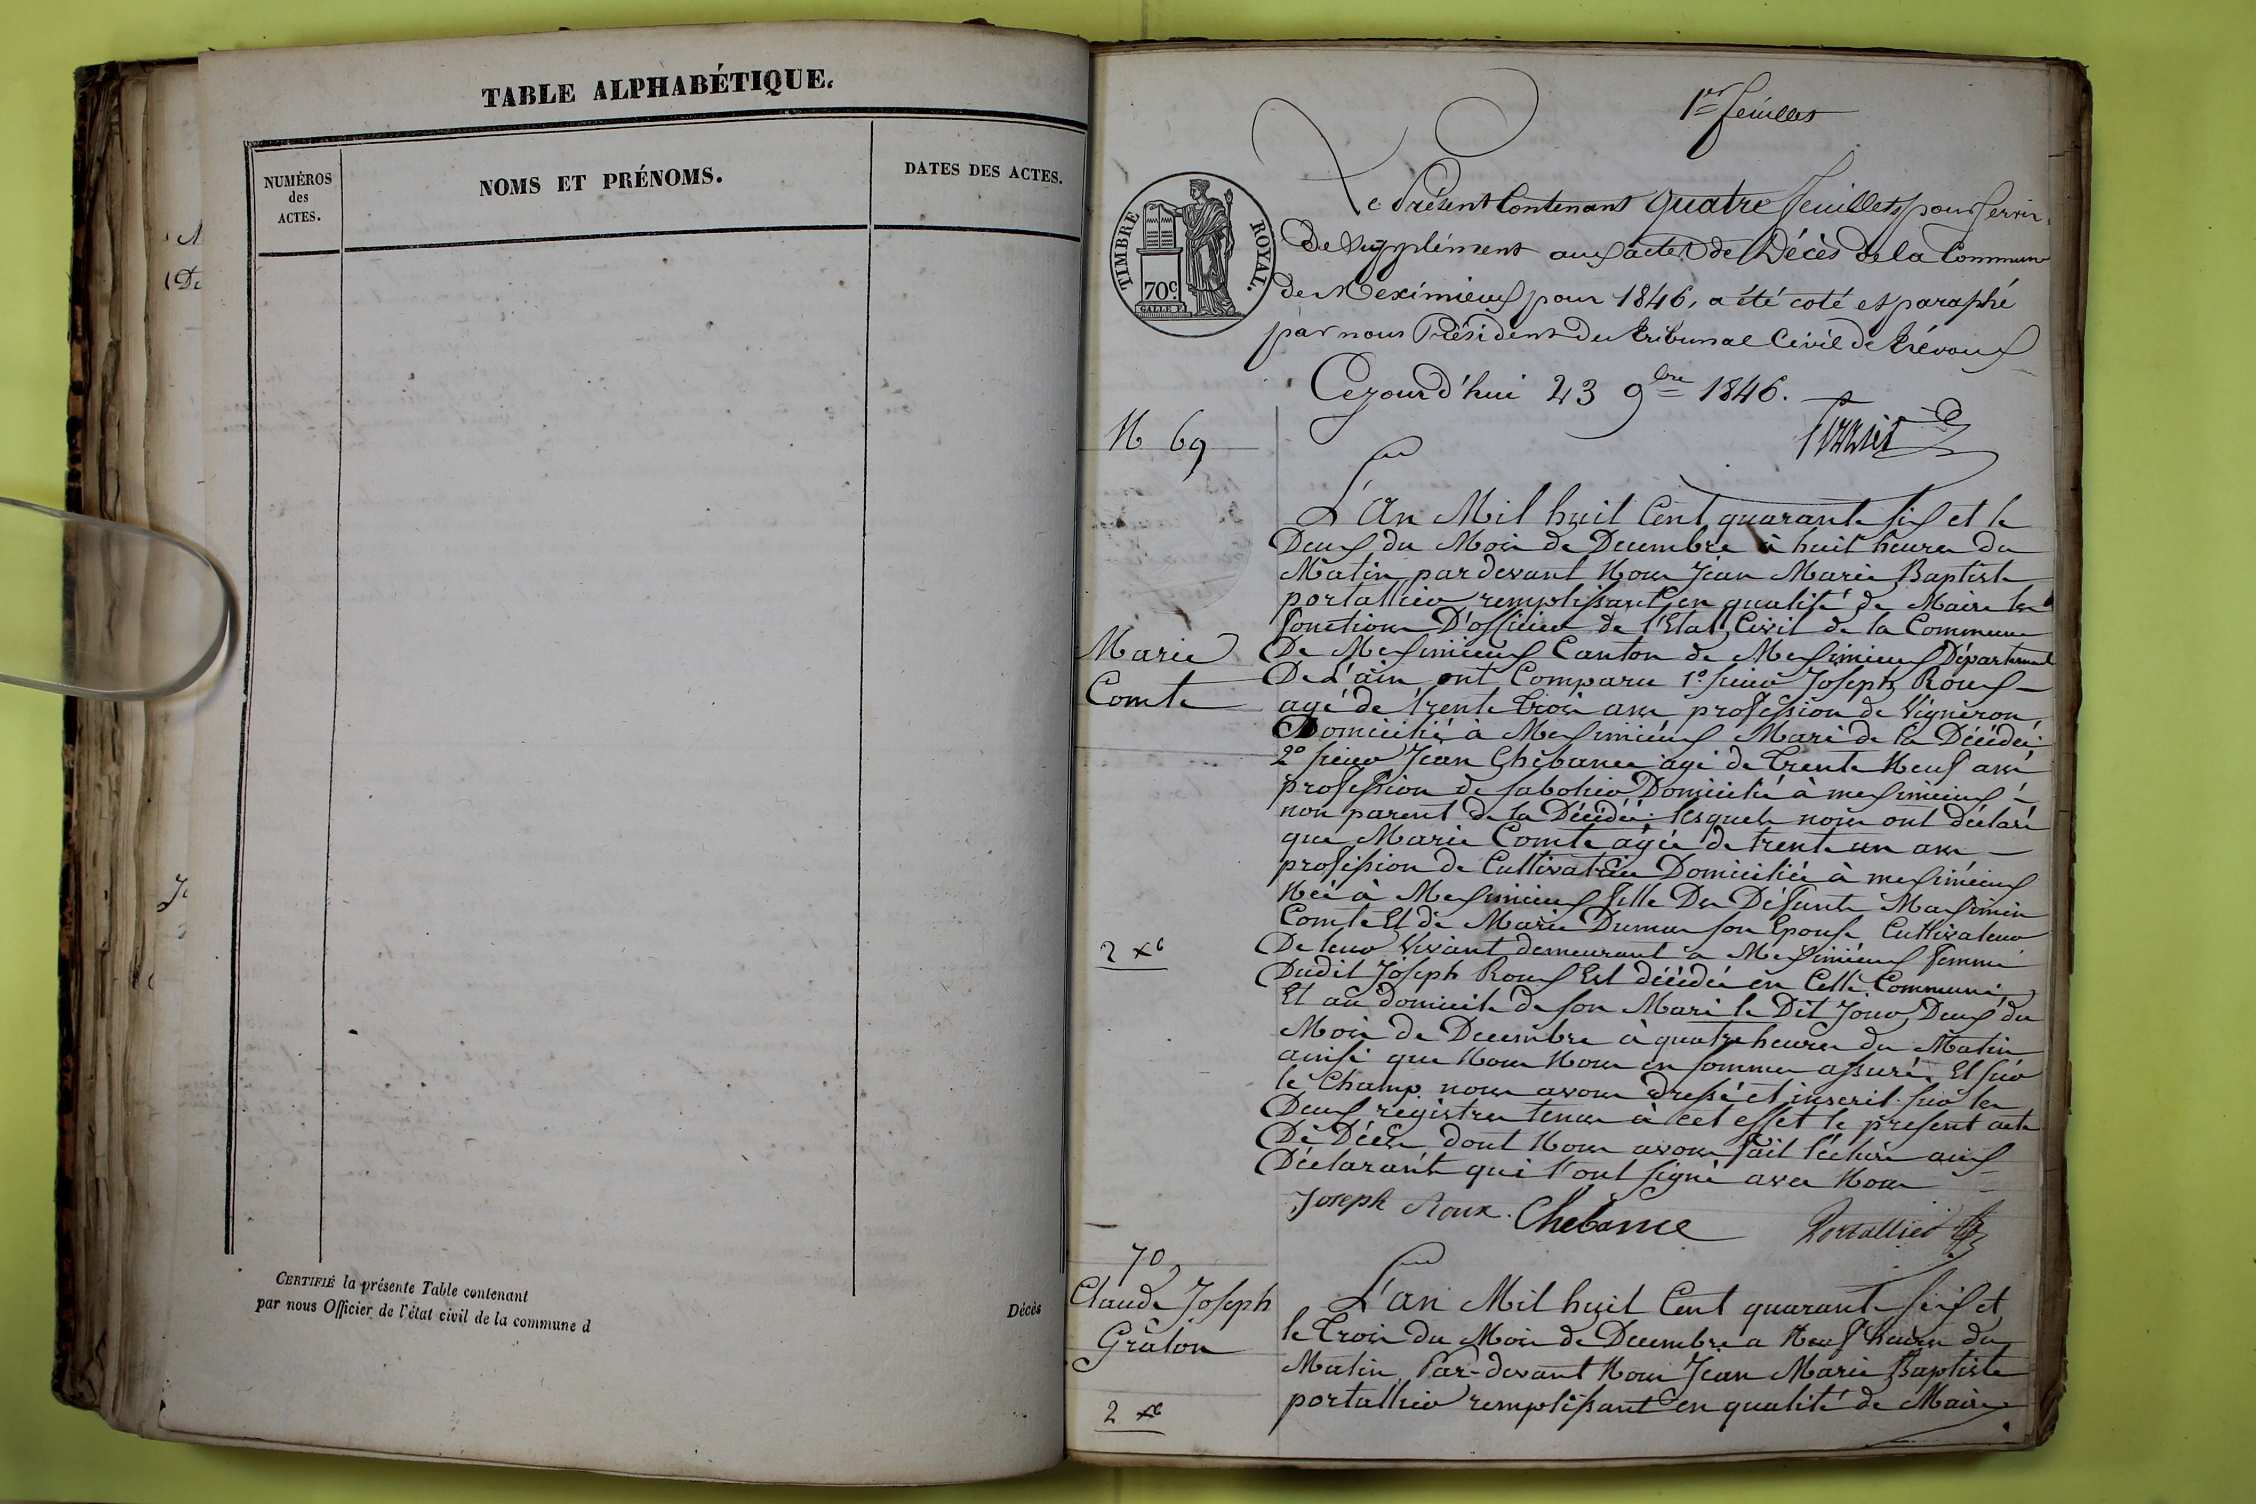 TABLE ALPHABÉTIQUE.
NUMÉROS
des
ACTES.
NOMS ET PRÉNOMS.
DATES DES ACTES.
CERTIFIÉ la présente Table contenant
par nous Officier de l'état civil de la commune d
Décès
1er feuillet
TIMBRE ROYAL.
70c.
Le Présent Contenant quatre feuillets pour servir
de Supplément aux actes de Décès de la Commune
de Meximieux pour 1846, a été coté et paraphé
par nous Président du tribunal Civil de Trévoux
Cejourd'hui 23 9bre 1846.
N 69
Marie
Comte
2 xc
L'an Mil huit Cent quarante six et le
Deux du Mois de Decembre à huit heures du
Matin par devant Nous Jean Marie Baptiste
portallier remplissant en qualité de Maire les
fonctions D'officier de l'Etat Civil de la Commune
De Meximieux Canton de Meximieux Département
De L'ain ont Comparu 1º sieur Joseph Roux
agé de trente trois ans profession de Vigneron
Domicilié à Meximieux Mari de la Décédée
2º sieur Jean Chebance agé de Trente Neuf ans
profession de sabotier Domicilié à meximieux
non parent de la Décédée lesquels nous ont déclaré
que Marie Comte agée de trente un ans
profession de Cultivatrice Domiciliée à meximieux
Née à Meximieux fille De Défunts Maximin
Comte Et de Marie Dumas son Epouse Cultivateurs
De leur Vivant demeurant à Meximieux femme
Dudit Joseph Roux Est décédée en Cette Commune
Et au domicile de son Mari le Dit Jour Deux du
Mois de Decembre à quatre heures du Matin
ainsi que Nous Nous en sommes assuré. Et sur
le Champ nous avons dressé et inscrit sur les
Deux registres tenus à cet effet le présent acte
De Décès dont Nous avons fait lecture aux
Déclarants qui l'ont signé avec Nous
Joseph Roux. Chebance Portallier
70
Claude Joseph
Graton
2 xc
L'an Mil huit Cent quarante six et
le Trois du Mois de Decembre a Neuf heures du
Matin Par-devant Nous Jean Marie Baptiste
portallier remplissant en qualité de Maire